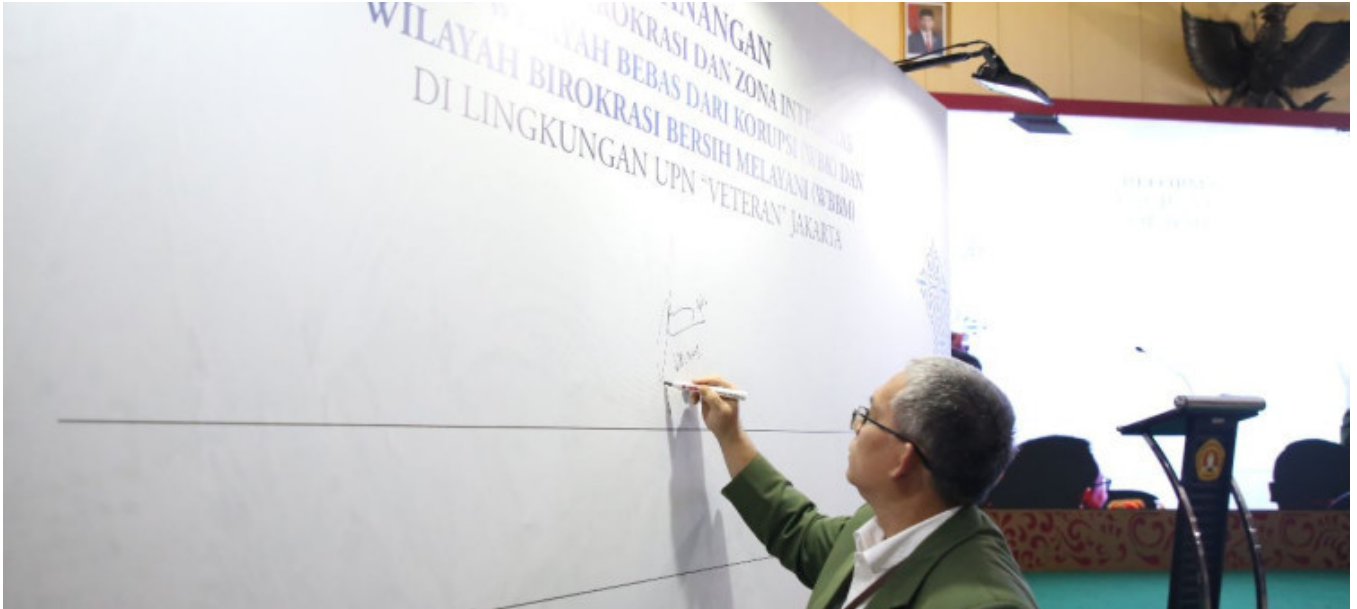 ANANGAN
BIROKRASI DAN ZONA
WILAYAH BEBAS DARI KORUPSI (WBK) DAN
WILAYAH BIROKRASI BERSIH MELAYANI (WBBM)
DI LINGKUNGAN UPN "VETERAN" JAKARTA